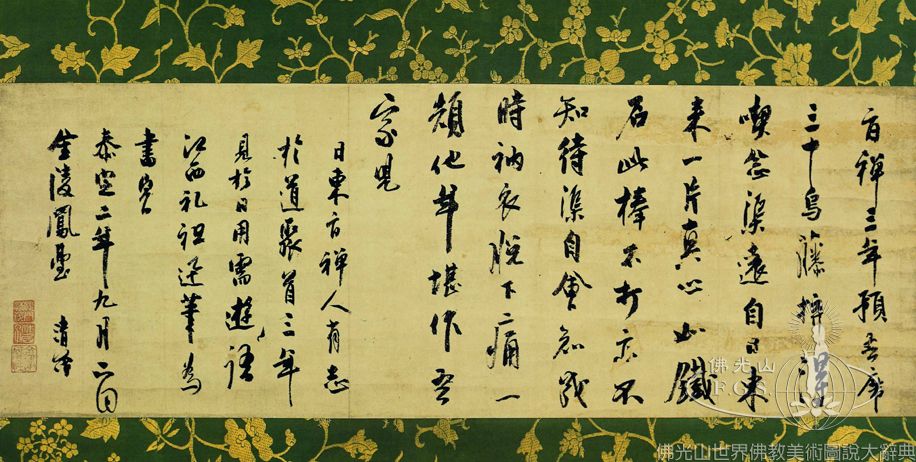 旨禪三年預吾席
三十烏藤
喫念渠遠自日東
来一片真心如鐵
石此棒不打亦不
知待渠自會知我
時衲衣脫下痛一
頓他年堪作吾
家児
日東旨禪人有志
於道聚首三年
見於日用需遊語
江西礼祖迅筆為
書
泰定二年九月二日
金陵鳳臺 清茂
佛光山
F.G.S.
佛光山世界佛教美術圖說大辭典